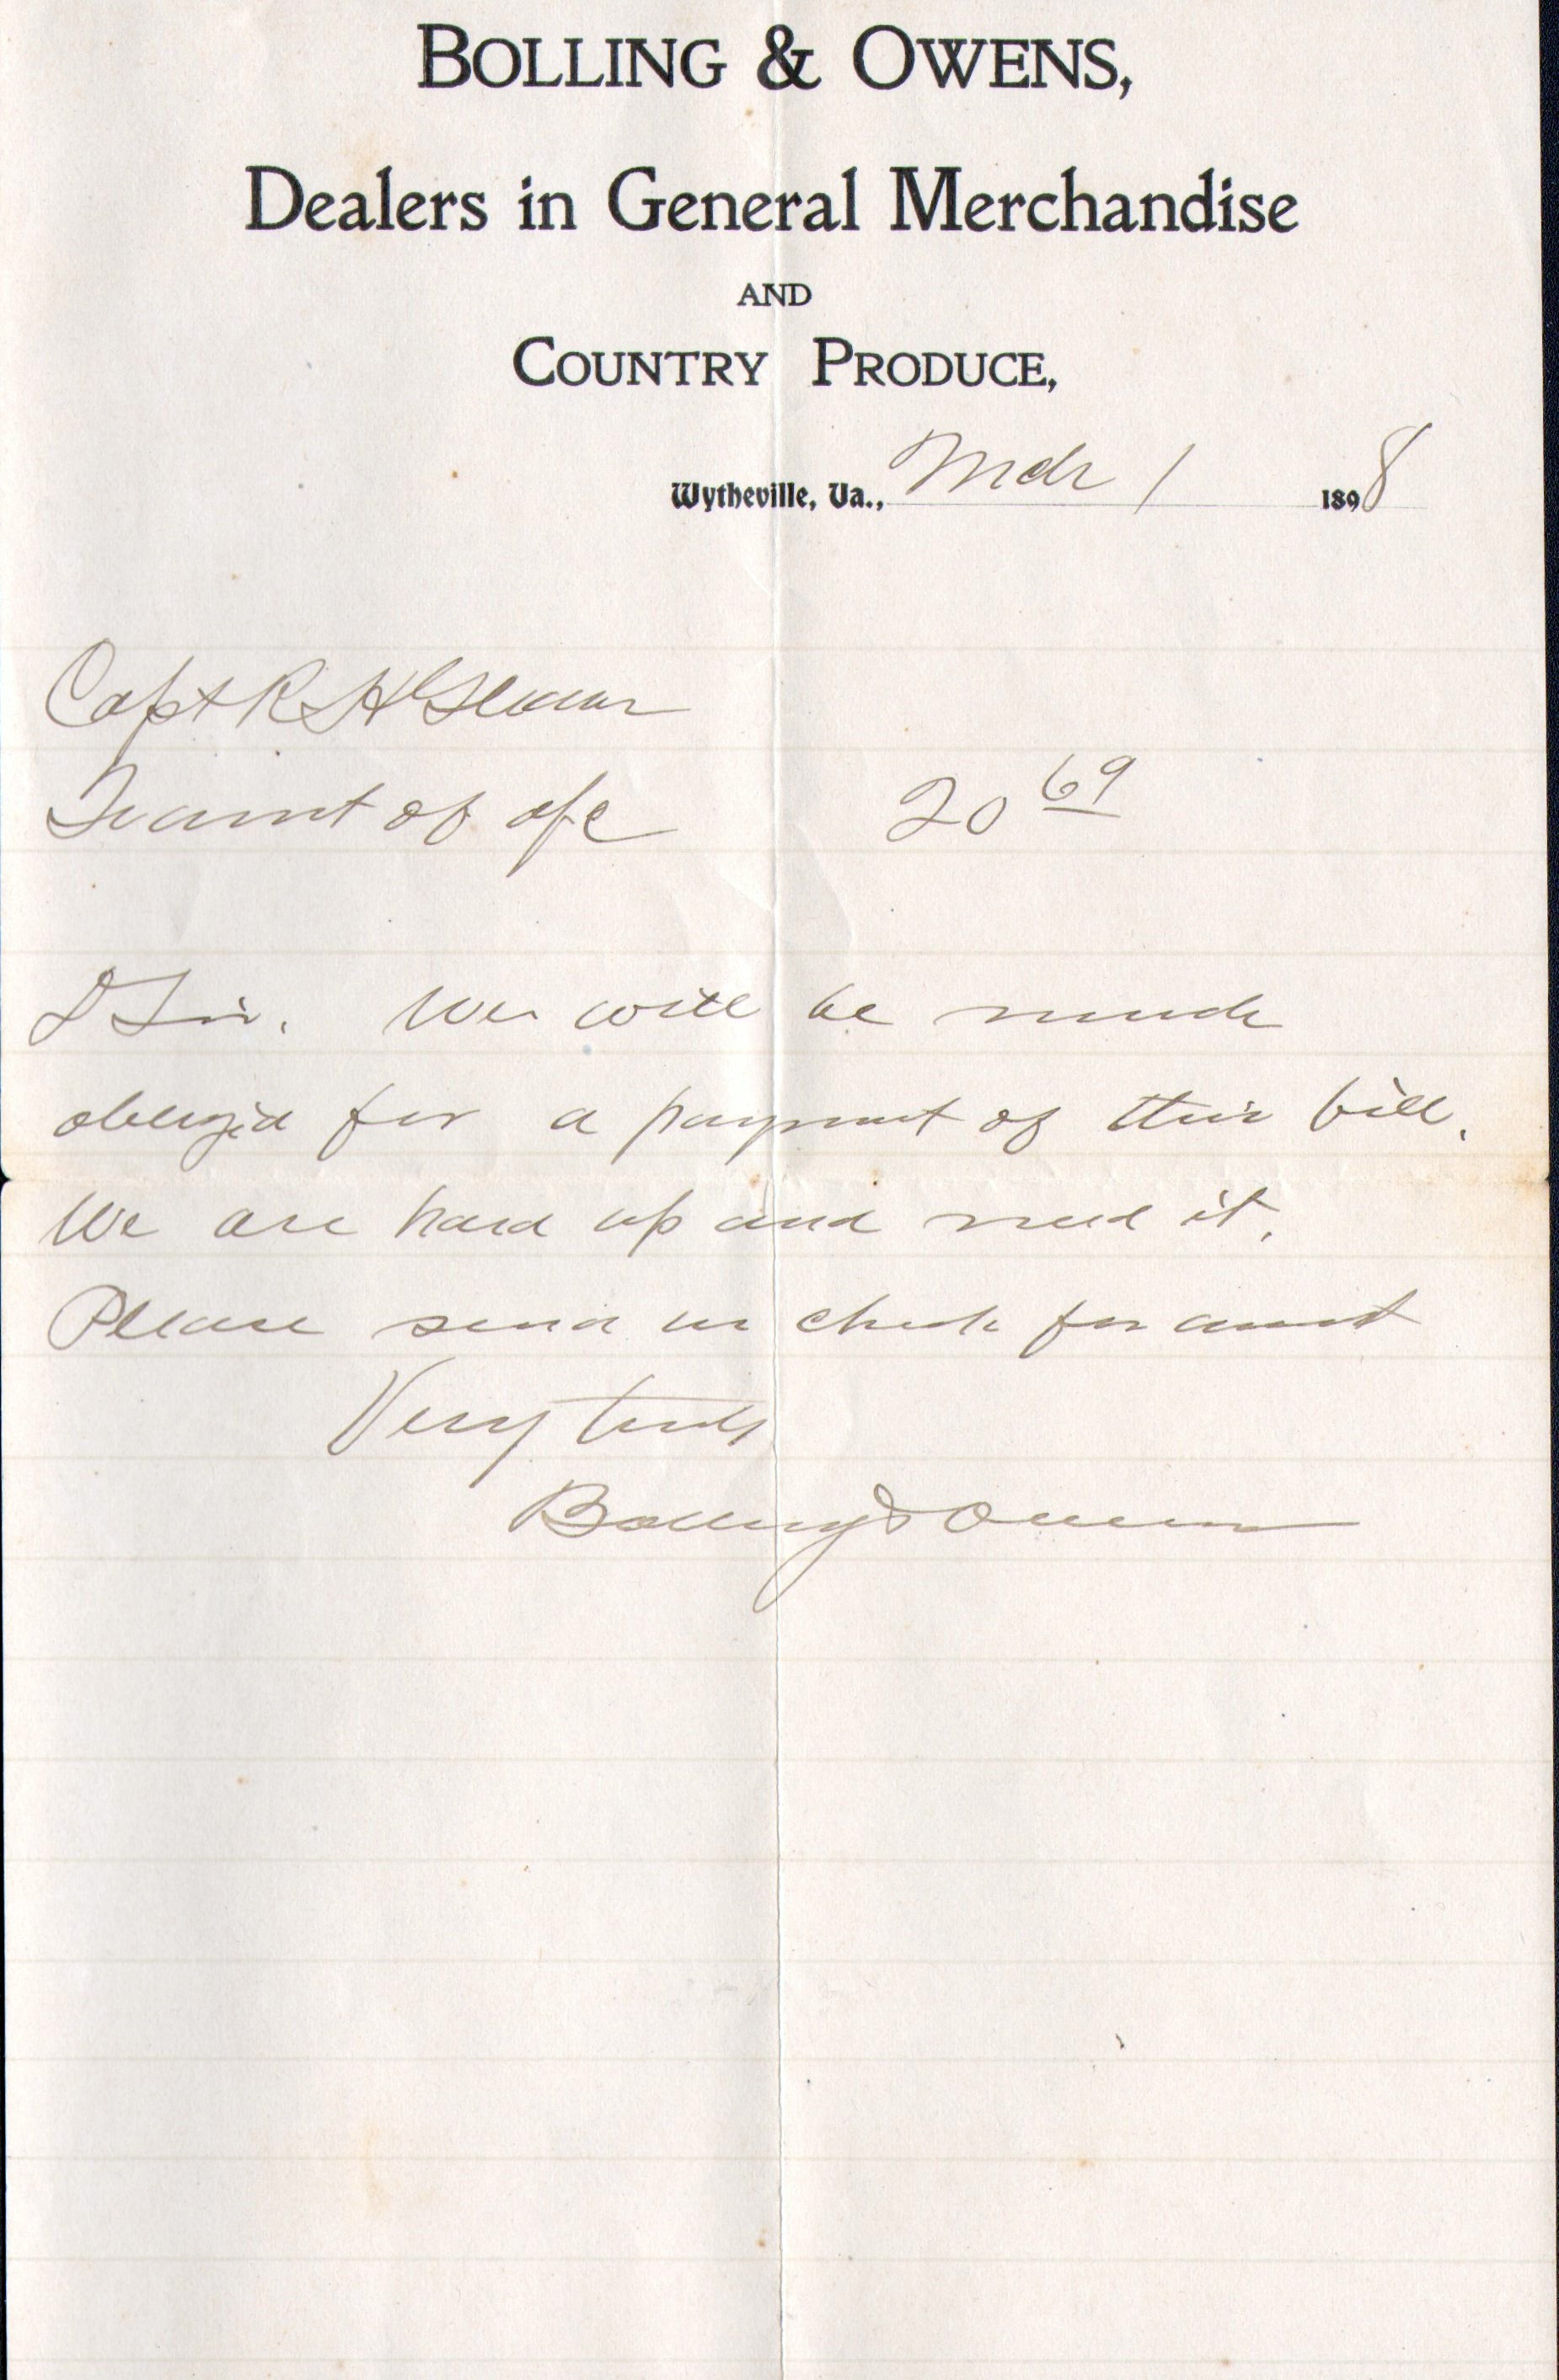 BOLLING & OWENS,
Dealers in General Merchandise
AND
COUNTRY PRODUCE,
Wytheville, Va., Mch 1 1898
Capt R H
To amt of a/c 20 69
D Sir. We will be much
obliged for a payment of this bill.
We are hard up and need it.
Please send us check for amt
Very truly
Bolling & Owens